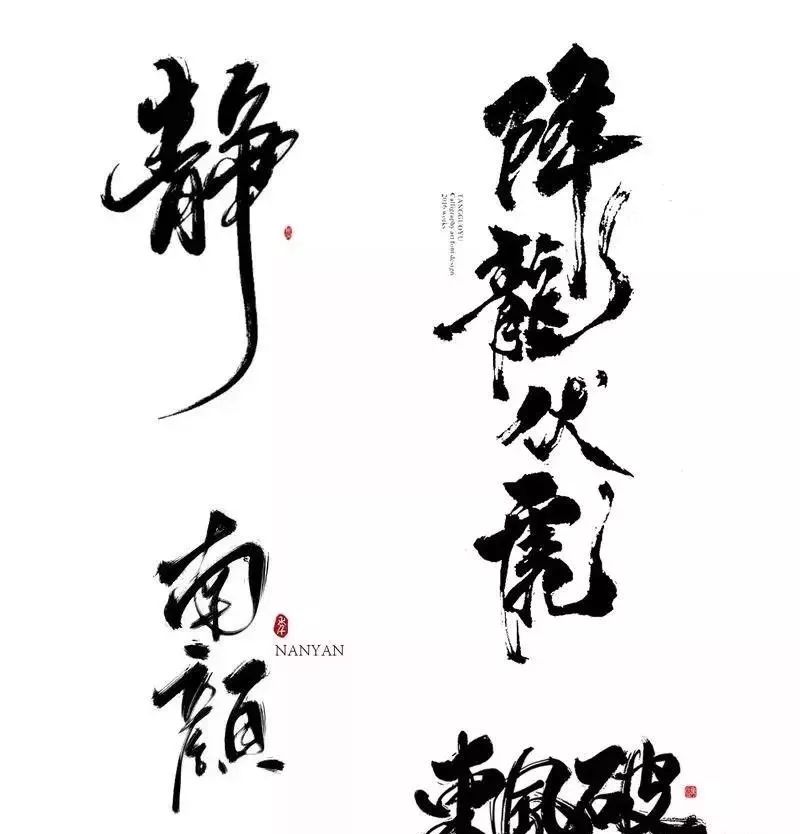 静
降龍伏虎
TANGGUOYU
Calligraphy art font design
2016 works
南顔
NANYAN
東風破